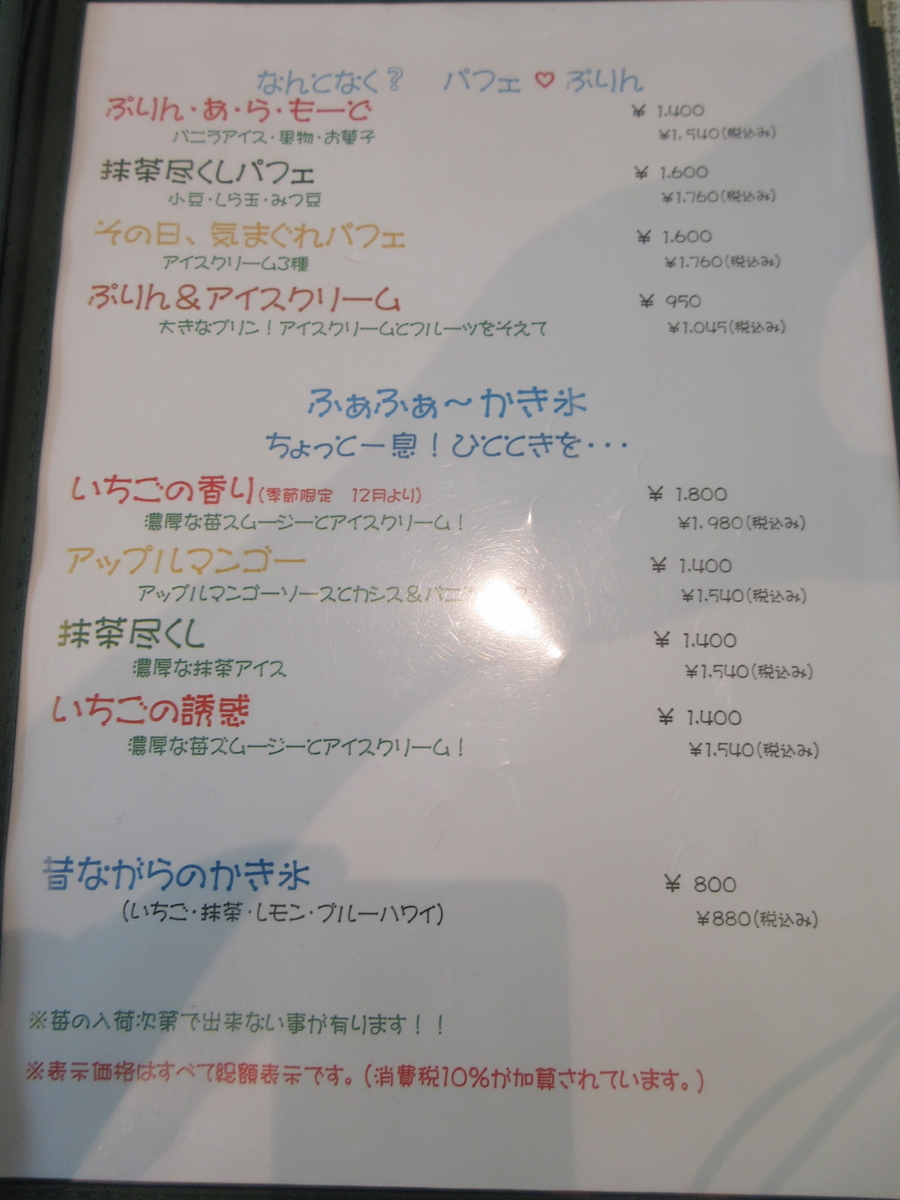 なんとなく？　パフェ♡ぷりん
ぷりん・あ・ら・もーど ￥1.400
バニラアイス・果物・お菓子 ￥1.540(税込み)
抹茶尽くしパフェ ￥1.600
小豆・しら玉・みつ豆 ￥1.760(税込み)
その日、気まぐれパフェ ￥1.600
アイスクリーム3種 ￥1.760(税込み)
ぷりん＆アイスクリーム ￥950
大きなプリン！アイスクリームとフルーツをそえて ￥1.045(税込み)
ふぁふぁ～かき氷
ちょっと一息！ひとときを・・・
いちごの香り(季節限定　12月より) ￥1.800
濃厚な苺スムージーとアイスクリーム！ ￥1.980(税込み)
アップルマンゴー ￥1.400
アップルマンゴーソースとカシス＆バニ ￥1.540(税込み)
抹茶尽くし ￥1.400
濃厚な抹茶アイス ￥1.540(税込み)
いちごの誘惑 ￥1.400
濃厚な苺ズムージーとアイスクリーム！ ￥1.540(税込み)
昔ながらのかき氷 ￥800
(いちご・抹茶・レモン・ブルーハワイ) ￥880(税込み)
※苺の入荷次第で出来ない事が有ります！！
※表示価格はすべて総額表示です。(消費税10%が加算されています。)